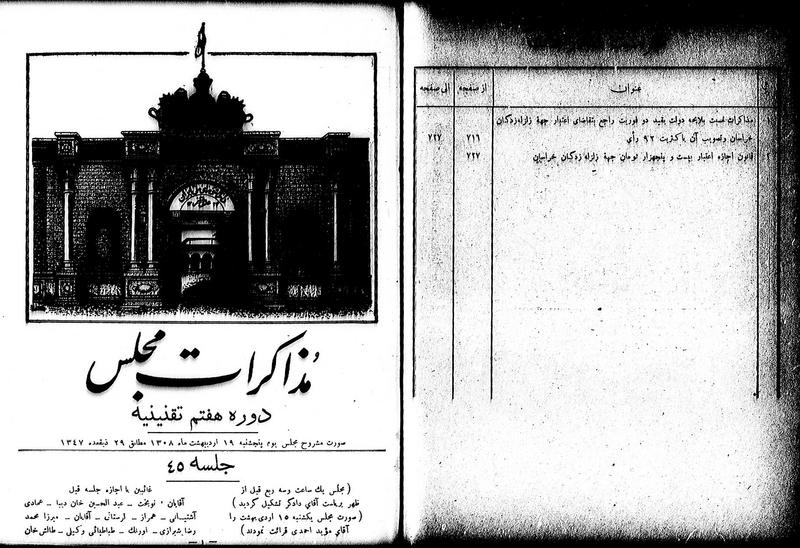 مذاکرات مجلس
دوره هفتم تقنینیه
صورت مشروح مجلس یوم پنجشنبه ۱۹ اردیبهشت ماه ۱۳۰۸ مطابق ۲۹ ذیقعده ۱۳۴۷
جلسه ۴۵
( مجلس یك ساعت وسه ربع قبل از
ظهر بریاست آقای دادگر تشکیل گردید )
( صورت مجلس یکشنبه ۱۵ اردیبهشت را
آقای مؤید احمدی قرائت نمودند )
غائبین با اجازه جلسه قبل
آقایان - نوبخت - عبد الحسین خان دیبا - عمادی
آشتیانی - همراز - لرستانی - آقایان - میرزا محمد
رضا شیرازی - اورنك - طباطبائی وکیلی - طالش خان
- ۱ -
عنوان از صفحه الی صفحه
۱ مذاکرات نسبت بلایحه دولت بقید دو فوریت راجع بتقاضای اعتبار جهة زلزله زدگان
خراسان وتصویب آن باکثریت ۹۲ رأی ۷۱۶ ۷۲۷
۲ قانون اجازه اعتبار بیست و پنجهزار تومان جهة زلزله زدگان خراسان ۷۲۷